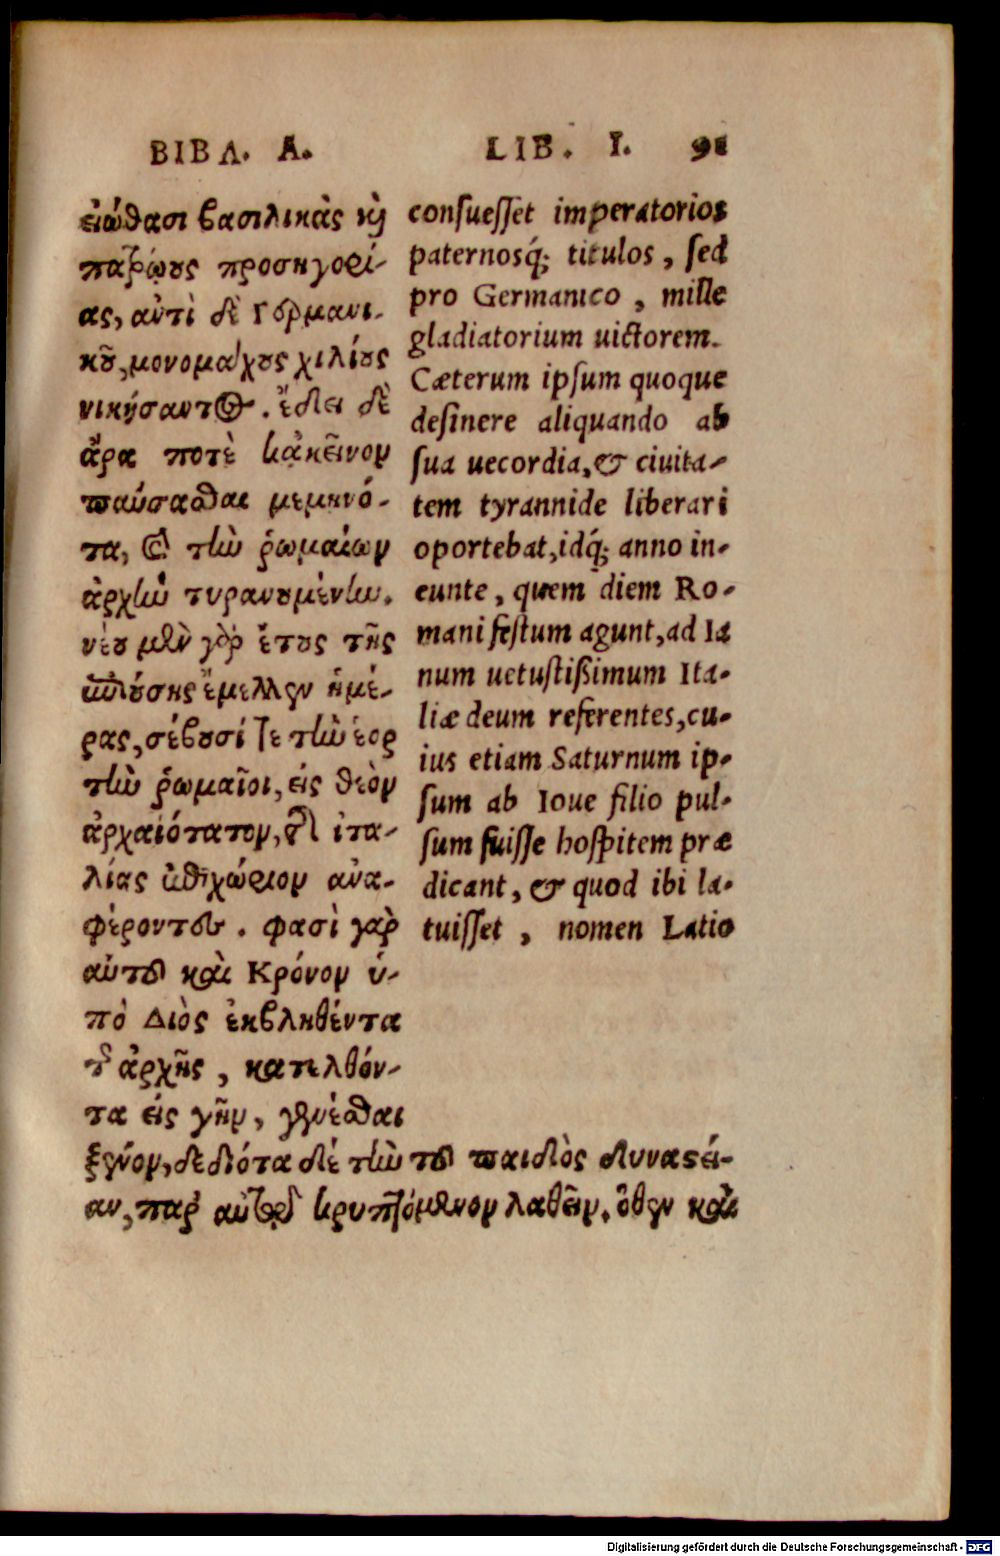 ΒΙΒΛ. Α.
εἰώθασι βασιλικὰς καὶ
πατρῴους προσηγορί-
ας, ἀντὶ δὲ Γερμανι-
κοῦ, μονομάχους χιλίους
νικήσαντος. ἔδει δὲ
ἄρα ποτὲ κἀκεῖνον
παύσασθαι μεμηνό-
τα, καὶ τὴν ῥωμαίων
ἀρχὴν τυραννουμένην.
νέου μὲν γὰρ ἔτους τῆς
ἐπιούσης ἔμελλεν ἡμέ-
ρας, σέβουσί τε τὴν ἑορ
τὴν ῥωμαῖοι, εἰς θεὸν
ἀρχαιότατον, τῆς ἰτα-
λίας ἐπιχώριον ἀνα-
φέροντες. φασὶ γὰρ
αὐτοῦ καὶ Κρόνον ὑ-
πὸ Διὸς ἐκβληθέντα
τῆς ἀρχῆς, κατελθόν-
τα εἰς γῆν, γενέσθαι
ξένον, δεδιότα δὲ τὴν τοῦ παιδὸς δυναστεί-
αν, παρ' αὐτῷ κρυπτόμενον λαθεῖν. ὅθεν καὶ
LIB. I. 91
consuesset imperatorios
paternosq́; titulos, sed
pro Germanico, mille
gladiatorium uictorem.
Cæterum ipsum quoque
desinere aliquando ab
sua uecordia, & ciuita-
tem tyrannide liberari
oportebat, idq́; anno in-
eunte, quem diem Ro-
mani festum agunt, ad Ia
num uetustißimum Ita-
liæ deum referentes, cu-
ius etiam Saturnum ip-
sum ab Ioue filio pul-
sum fuisse hospitem præ
dicant, & quod ibi la-
tuisset, nomen Latio
Digitalisierung gefördert durch die Deutsche Forschungsgemeinschaft - DFG